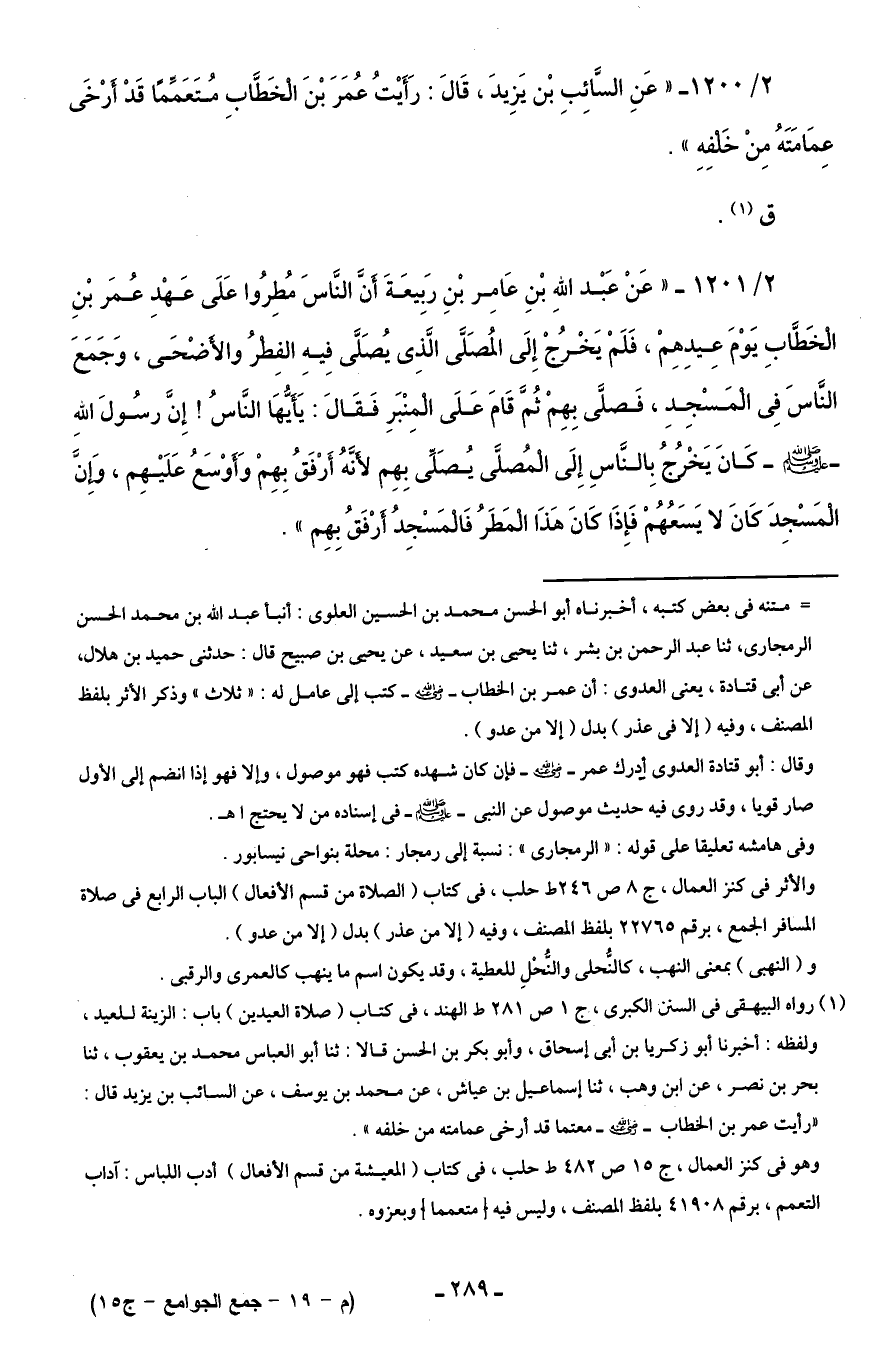 ٢/ ١٢٠٠ـ « عَنِ السَّائِبِ بْنِ يَزِيدَ ، قَالَ : رَأَيْتُ عُمَرَ بْنَ الْخَطَّابِ مُتَعَمِّمًا قَدْ أَرْخَى
عِمَامَتَهُ مِنْ خَلْفِهِ » .
ق (١) .
٢/ ١٢٠١ ـ « عَنْ عَبْدِ اللهِ بْنِ عَامِرِ بْنِ رَبِيعَةَ أَنَّ النَّاسَ مُطِرُوا عَلَى عَهْدِ عُمَرَ بْنِ
الْخَطَّابِ يَوْمَ عِيدِهِمْ ، فَلَمْ يَخْرُجْ إِلَى المُصَلَّى الَّذِى يُصَلَّى فِيهِ الفِطْرُ والأَضْحَى ، وَجَمَعَ
النَّاسَ فِى الْمَسْجِدِ ، فَصلَّى بِهِمْ ثُمَّ قَامَ عَلَى الْمِنْبَرِ فَقَالَ : يَأَيُّهَا النَّاسُ ! إِنَّ رسُولَ اللهِ
ـ ﷺ ـ كَانَ يَخْرُجُ بِالنَّاسِ إِلَى الْمُصلَّى يُصَلِّى بِهِم لأَنَّهُ أَرْفَقُ بِهِمْ وَأَوْسَعُ عَلَيْهِم ، وَإِنَّ
الْمَسْجِدَ كَانَ لا يَسَعُهُمْ فَإِذَا كَانَ هَذَا المَطَرُ فَالمَسْجِدُ أَرْفَقُ بِهِم » .
= متنه فى بعض كتبه ، أخبرناه أبو الحسن محمد بن الحسين العلوى : أنبأ عبد الله بن محمد الحسن
الرمجارى، ثنا عبد الرحمن بن بشر ، ثنا يحيى بن سعيد ، عن يحيى بن صبيح قال : حدثنى حميد بن هلال،
عن أبى قتادة ، يعنى العدوى : أن عمر بن الخطاب ـ رضي الله عنه ـ كتب إلى عامل له : « ثلاث » وذكر الأثر بلفظ
المصنف ، وفيه ( إلا فى عذر ) بدل ( إلا من عدو ) .
وقال : أبو قتادة العدوى أدرك عمر ـ رضي الله عنه ـ فإن كان شهده كتب فهو موصول ، وإلا فهو إذا انضم إلى الأول
صار قويا ، وقد روى فيه حديث موصول عن النبى ـ ﷺ ـ فى إسناده من لا يحتج ا هـ .
وفى هامشه تعليقا على قوله : « الرمجارى » : نسبة إلى رمجار : محلة بنواحى نيسابور .
والأثر فى كنز العمال ، ج ٨ ص ٢٤٦ط حلب ، فى كتاب ( الصلاة من قسم الأفعال ) الباب الرابع فى صلاة
المسافر الجمع ، برقم ٢٢٧٦٥ بلفظ المصنف ، وفيه ( إلا من عذر ) بدل ( إلا من عدو ) .
و ( النهبى ) بمعنى النهب ، كالنُّحلى والنُّحْلِ للعطية ، وقد يكون اسم ما ينهب كالعمرى والرقبى .
(١) رواه البيهقى فى السنن الكبرى ، ج ١ ص ٢٨١ ط الهند ، فى كتاب ( صلاة العيدين ) باب : الزينة للعيد ،
ولفظه : أخبرنا أبو زكريا بن أبى إسحاق ، وأبو بكر بن الحسن قالا : ثنا أبو العباس محمد بن يعقوب ، ثنا
بحر بن نصر ، عن ابن وهب ، ثنا إسماعيل بن عياش ، عن محمد بن يوسف ، عن السائب بن يزيد قال :
«رأيت عمر بن الخطاب ـ رضي الله عنه ـ معتما قد أرخى عمامته من خلفه » .
وهو فى كنز العمال ، ج ١٥ ص ٤٨٢ ط حلب ، فى كتاب ( المعيشة من قسم الأفعال ) أدب اللباس : آداب
التعمم ، برقم ٤١٩٠٨ بلفظ المصنف ، وليس فيه { متعمما } وبعزوه .
ـ ٢٨٩ ـ
(م - ١٩ - جمع الجوامع - ج١٥)